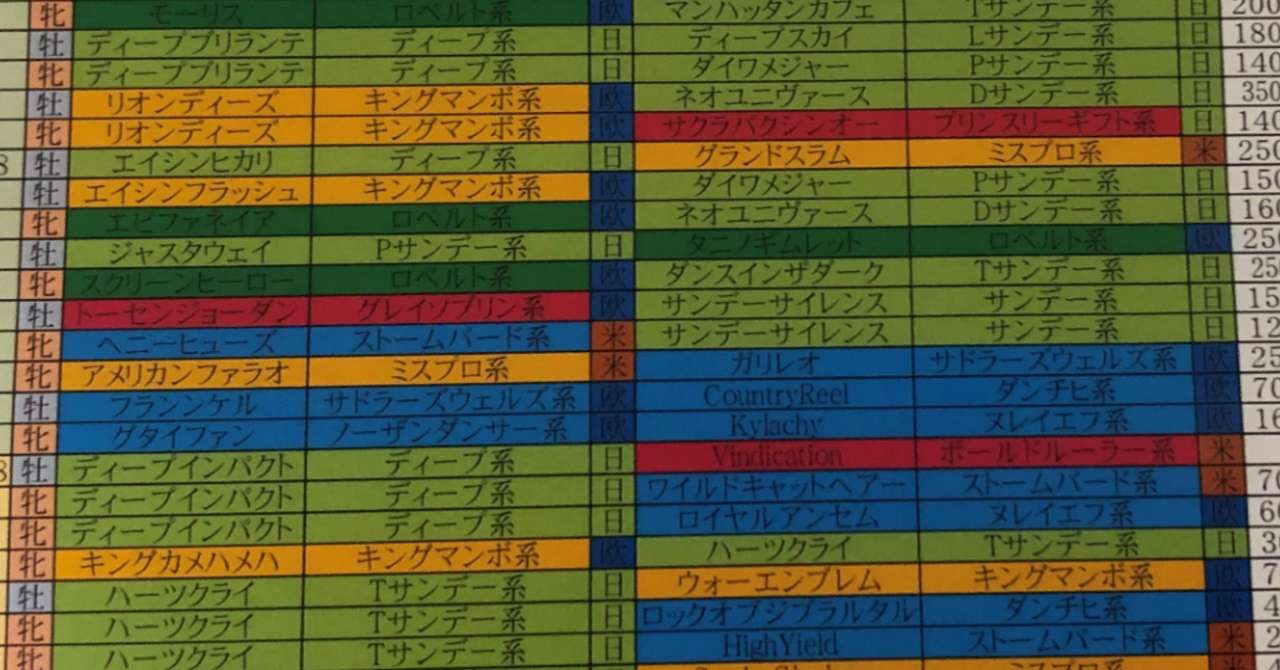 牝 モーリス ロベルト系 欧 マンハッタンカフェ Tサンデー系 日 200
牡 ディープブリランテ ディープ系 日 ディープスカイ Lサンデー系 日 180
牝 ディープブリランテ ディープ系 日 ダイワメジャー Pサンデー系 日 140
牡 リオンディーズ キングマンボ系 欧 ネオユニヴァース Dサンデー系 日 350
牝 リオンディーズ キングマンボ系 欧 サクラバクシンオー プリンスリーギフト系 日 140
8 牡 エイシンヒカリ ディープ系 日 グランドスラム ミスプロ系 米 250
牡 エイシンフラッシュ キングマンボ系 欧 ダイワメジャー Pサンデー系 日 150
牝 エピファネイア ロベルト系 欧 ネオユニヴァース Dサンデー系 日 160
牡 ジャスタウェイ Pサンデー系 日 タニノギムレット ロベルト系 欧 250
牝 スクリーンヒーロー ロベルト系 欧 ダンスインザダーク Tサンデー系 日 25
牡 トーセンジョーダン グレイソブリン系 欧 サンデーサイレンス サンデー系 日 15
牝 ヘニーヒューズ ストームバード系 米 サンデーサイレンス サンデー系 日 12
牝 アメリカンファラオ ミスプロ系 米 ガリレオ サドラーズウェルズ系 欧 25
牡 フランンケル サドラーズウェルズ系 欧 CountryReel ダンチヒ系 欧 70
牝 グタイファン ノーザンダンサー系 欧 Kylachy ヌレイエフ系 欧 16
8 牡 ディープインパクト ディープ系 日 Vindication ボールドルーラー系 米
牝 ディープインパクト ディープ系 日 ワイルドキャットヘアー ストームバード系 米 70
牝 ディープインパクト ディープ系 日 ロイヤルアンセム ヌレイエフ系 欧 60
牝 キングカメハメハ キングマンボ系 欧 ハーツクライ Tサンデー系 日 3
牡 ハーツクライ Tサンデー系 日 ウォーエンブレム キングマンボ系 欧 7
牝 ハーツクライ Tサンデー系 日 ロックオブジブラルタル ダンチヒ系 欧 4
牝 ハーツクライ Tサンデー系 日 HighYield ストームバード系 米 2
ミスプロ系